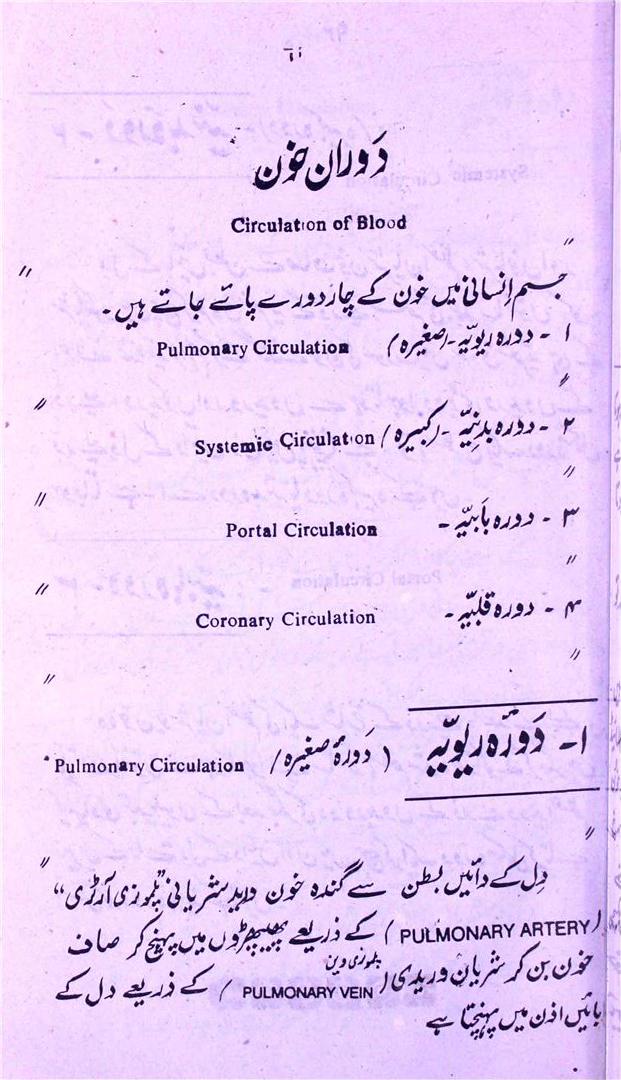 دَورانِ خون
Circulation of Blood
جسم اِنسانی میں خون کے چار دورے پائے جاتے ہیں۔
۱ - دورہ ریویّہ - (صغیرہ) Pulmonary Circulation
۲ - دورہ بدنیّہ - (کبیرہ) Systemic Circulation
۳ - دورہ بَابیّہ - Portal Circulation
۴ - دورہ قلبیّہ - Coronary Circulation
۱- دَورۂ ریویّہ (دَورۂ صغیرہ) Pulmonary Circulation
دِل کے دائیں بطن سے گندہ خون ورید شریانی "پلموزی آرٹری"
(PULMONARY ARTERY) کے ذریعے پھیپھڑوں میں پہنچ کر صاف
خون بن کر شریان وریدی (پلموزی وین PULMONARY VEIN) کے ذریعے دل کے
بائیں اذن میں پہنچتا ہے